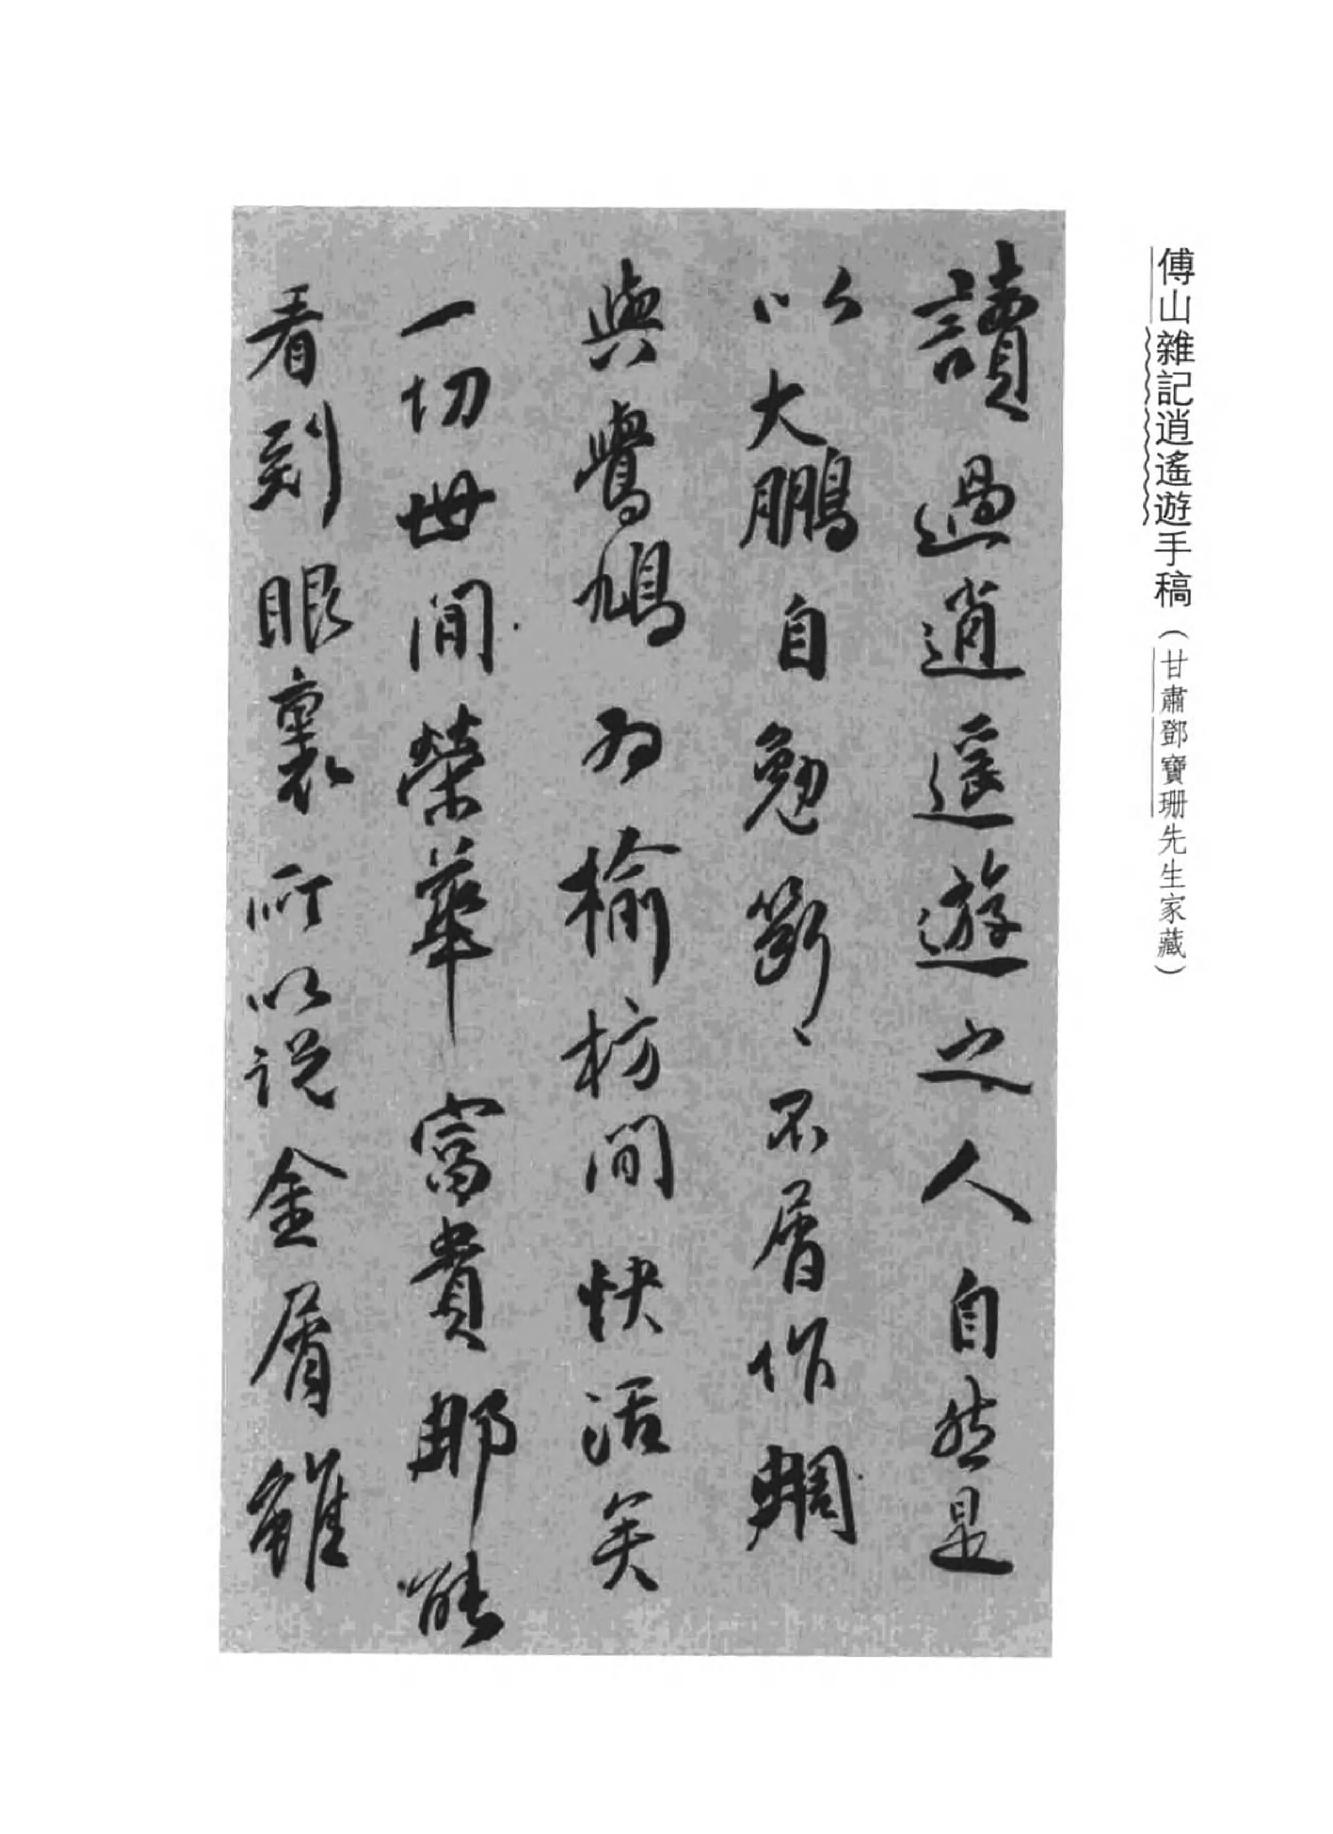 傅山雜記逍遙遊手稿（甘肅鄧寶珊先生家藏）
讀過逍遥遊之人自然是
以大鵬自勉斷〻不屑作蜩
與鷽鳩为榆枋間快活矣
一切世間榮華富貴那能
看到眼裏所以说金屑雖